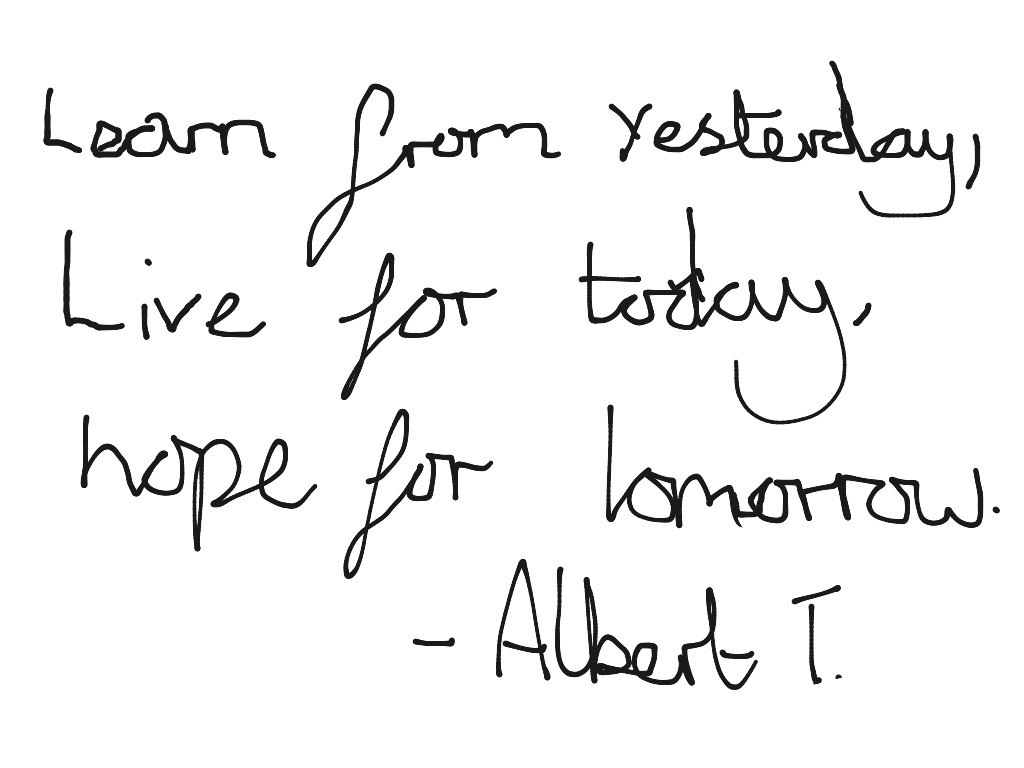 Learn from Yesterday,
Live for today,
hope for tomorrow.
- Albert T.